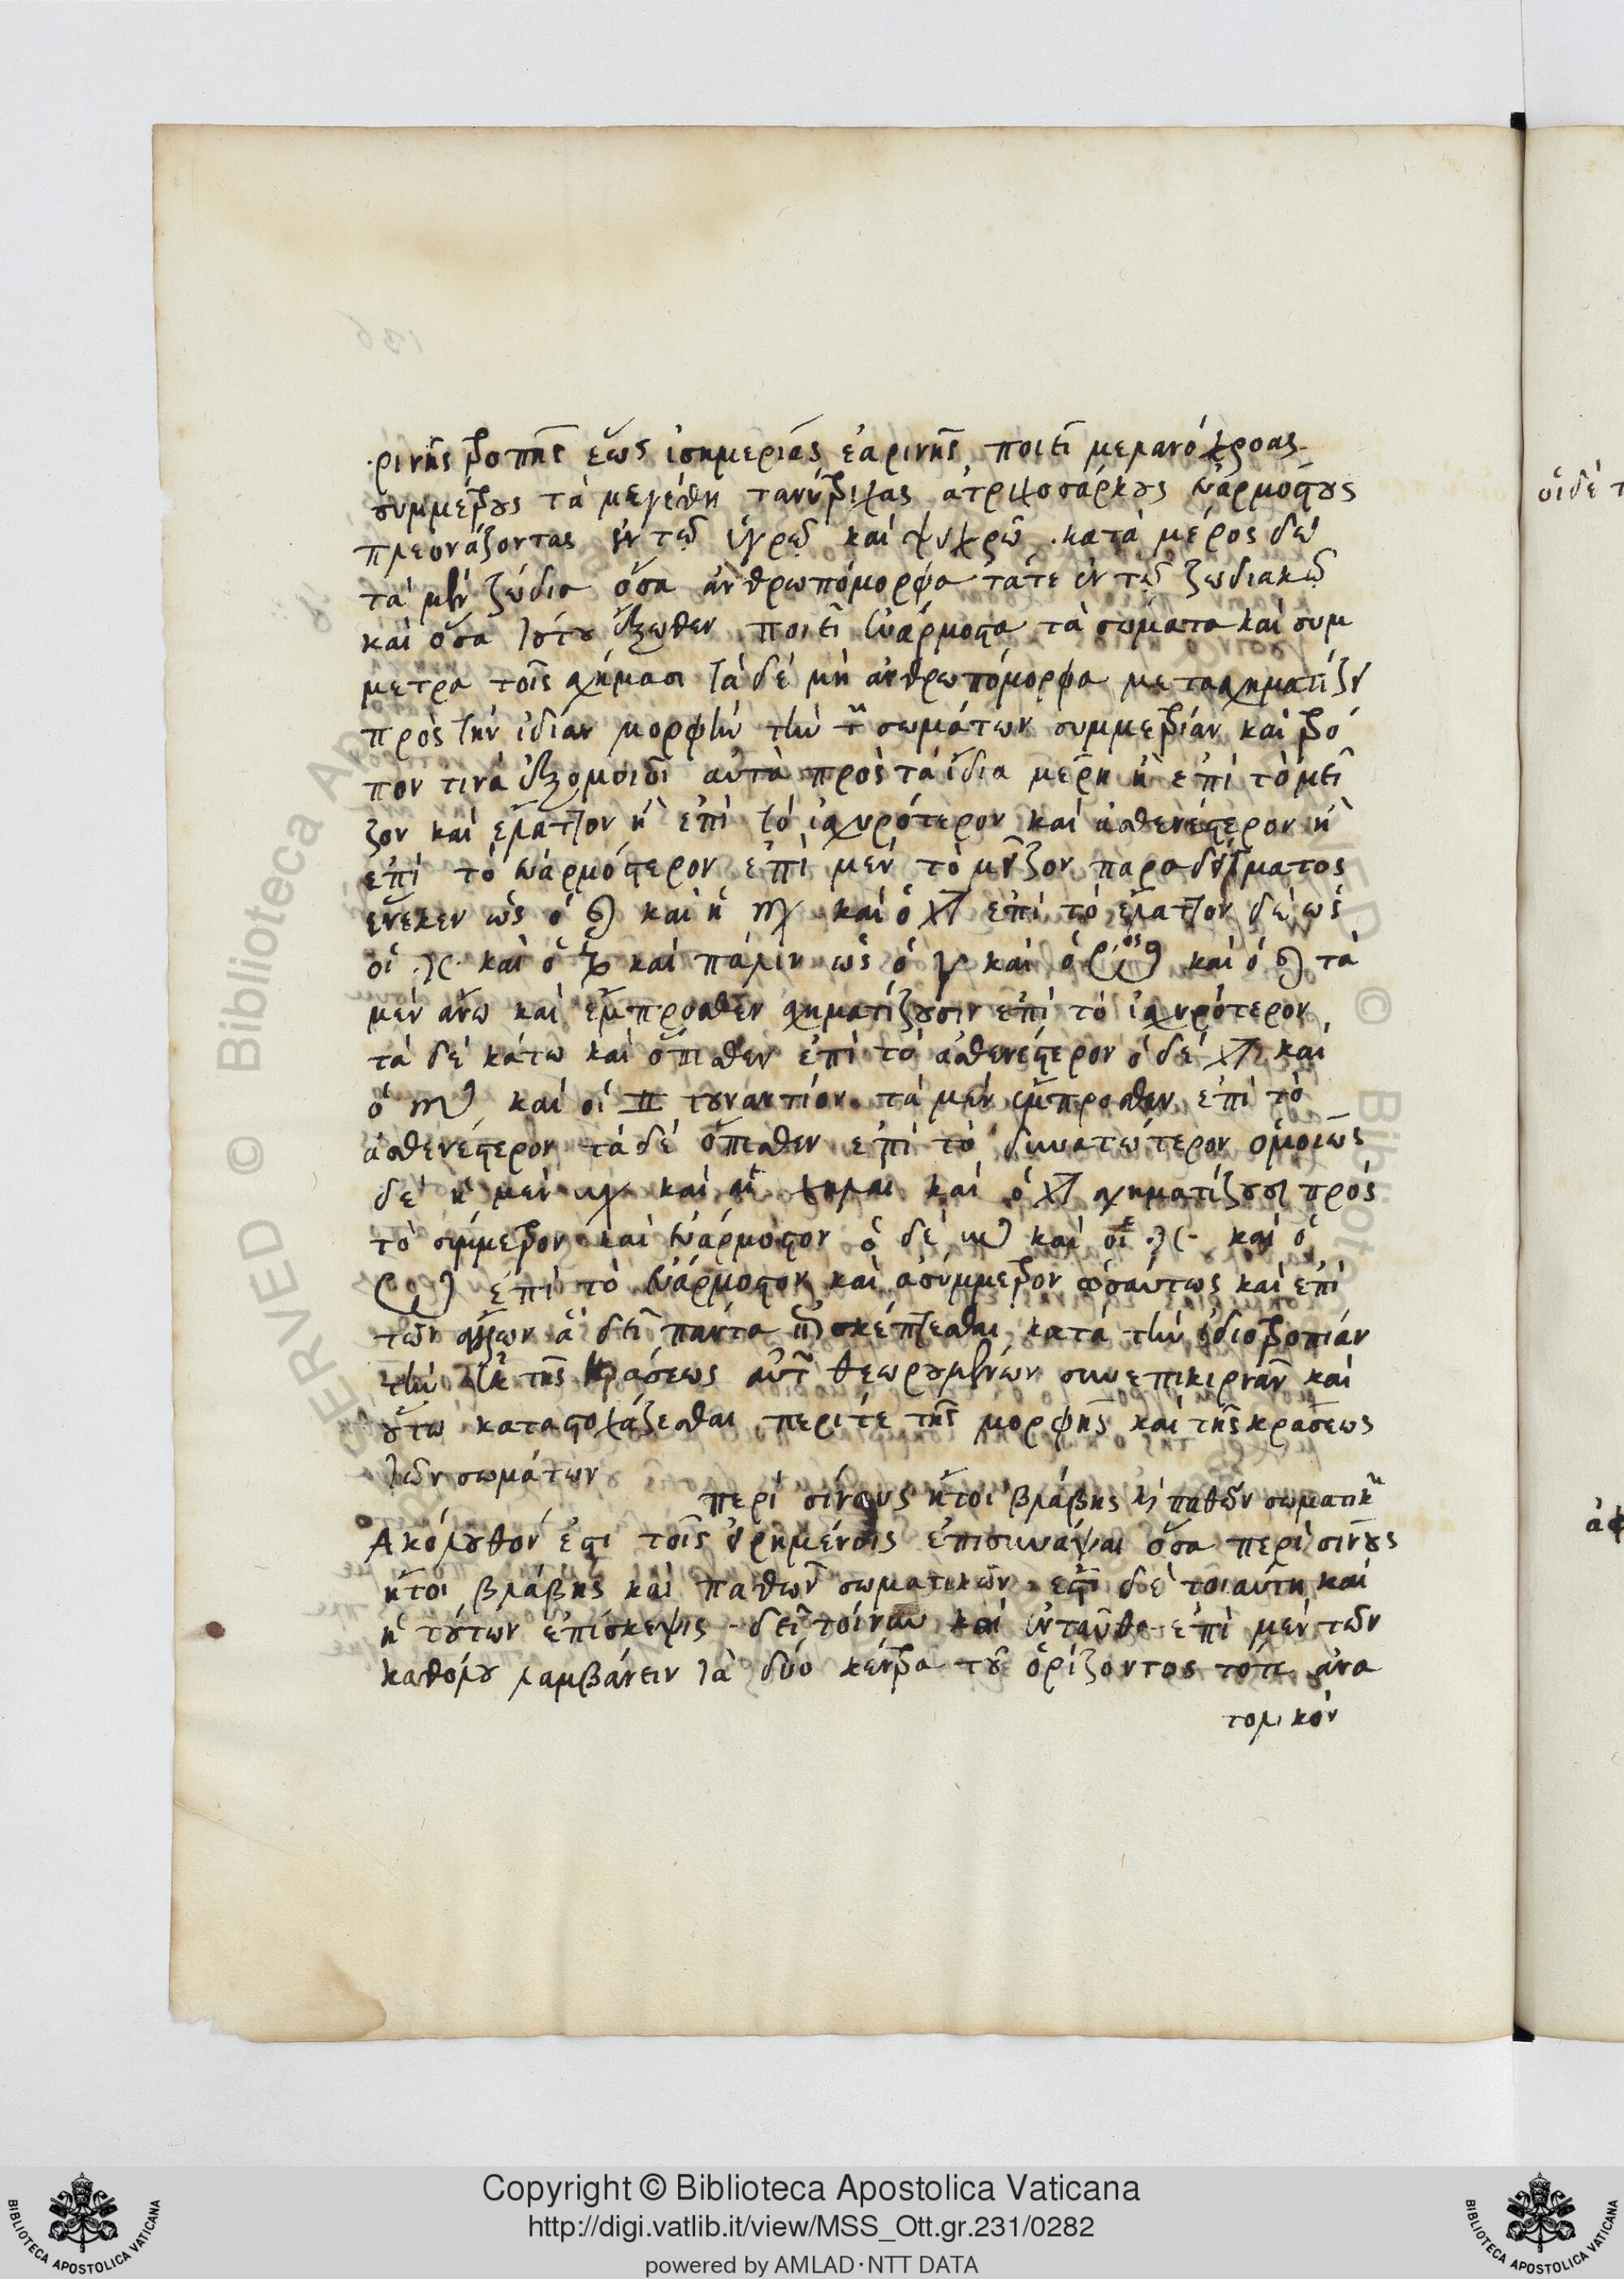 ρινῆς τροπῆς ἕως ἰσημερίας ἐαρινῆς ποιεῖ μελανόχροας
συμμέτρους τὰ μεγέθη τανύτριχας ἀτριχοσάρκους εὐαρμόστους
πλεονάζοντας ἐν τῷ ὑγρῷ καὶ ψυχρῷ . κατὰ μέρος δὲ
τὰ μὲν ζώδια ὅσα ἀνθρωπόμορφα τάτε ἐν τῷ ζωδιακῷ
καὶ ὅσα τούτου ἔξωθεν ποιεῖ εὐάρμοστα τὰ σώματα καὶ συμ
μετρα τοῖς σχήμασι τὰ δὲ μὴ ἀνθρωπόμορφα μετασχηματίζει
πρὸς τὴν ἰδίαν μορφὴν τὴν τῶν σωμάτων συμμετρίαν καὶ τρό
πον τινὰ ἐξομοιοῖ αὐτὰ πρὸς τὰ ἴδια μέρη ἢ ἐπὶ τὸ μεῖ
ζον καὶ ἔλαττον ἢ ἐπὶ τὸ ἰσχυρότερον καὶ ἀσθενέστερον ἢ
ἐπὶ τὸ εὐαρμόστερον ἐπὶ μὲν τὸ μεῖζον παραδείγματος
ἕνεκεν ὡς ὁ ♌ καὶ ἡ ♍ καὶ ὁ ♐ ἐπὶ τὸ ἔλαττον δὲ ὡς
οἱ ♓ καὶ ὁ ♑ καὶ πάλιν ὡς ὁ ♈ καὶ ὁ ♉ καὶ ὁ ♌ τὰ
μὲν ἄνω καὶ ἔμπροσθεν σχηματίζουσιν ἐπὶ τὸ ἰσχυρότερον
τὰ δὲ κάτω καὶ ὄπισθεν ἐπὶ τὸ ἀσθενέστερον ὁ δὲ ♐ καὶ
ὁ ♏ καὶ οἱ ♊ τουναντίον τὰ μὲν ἔμπροσθεν ἐπὶ τὸ
ἀσθενέστερον τὰ δὲ ὄπισθεν ἐπὶ τὸ δυνατώτερον ὁμοίως
δὲ ἡ μὲν ♍ καὶ αἱ χηλαι καὶ ὁ ♐ σχηματίζουσι πρὸς
τὸ σύμμετρον καὶ εὐάρμοστον ὁ δὲ ♏ καὶ οἱ ♓ καὶ ὁ
♉ ἐπὶ τὸ εὐάρμοστον καὶ ἀσύμμετρον ὡσαύτως καὶ ἐπὶ
τῶν ἄλλων ἃ δεῖ πάντα ἐπισκέπτεσθαι κατὰ τὴν ἰδιοτροπίαν
τὴν ἐκ τῆς κράσεως αὐτῶν θεωρουμένων συνεπικιρνᾶν καὶ
οὕτω καταστοχάζεσθαι περίτε τῆς μορφῆς καὶ τῆς κράσεως
τῶν σωμάτων
περὶ σίνους ἤτοι βλάβης κ παθῶν σωματικῶν
Ἀκόλουθόν ἐστι τοῖς εἰρημένοις ἐπισυνάψαι ὅσα περὶ σίνους
ἤτοι βλάβης καὶ παθῶν σωματικῶν ἐστὶ δὲ τοιαύτη καὶ
ἡ τούτων ἐπίσκεψις . δεῖ τοίνυν καὶ ἐνταῦθα ἐπὶ μὲν τῶν
καθόλου λαμβάνειν τὰ δύο κέντρα τοῦ ὁρίζοντος τότε ἀνα
τολικόν
οἱ δὲ τ
Copyright © Biblioteca Apostolica Vaticana
http://digi.vatlib.it/view/MSS_Ott.gr.231/0282
powered by AMLAD · NTT DATA
BIBLIOTECA APOSTOLICA VATICANA
BIBLIOTECA APOSTOLICA VATICANA